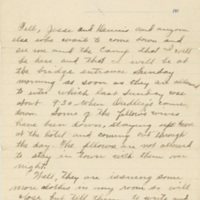 Well, Jesse and Hennie and anyone
else who wants to come down and
see me and the Camp that I will
be here and that I will be at
the bridge entrance Sunday
morning as soon as they are allowed
to enter which last Sunday was
about 9:30 when came
down. Some of the fellows wives
have been down, staying up here
at the hotel and coming out through
the day. The fellows are not allowed
to stay in town with them over
night.
Well, they are issuing some
more clothes in my room so will
close but tell them to write and